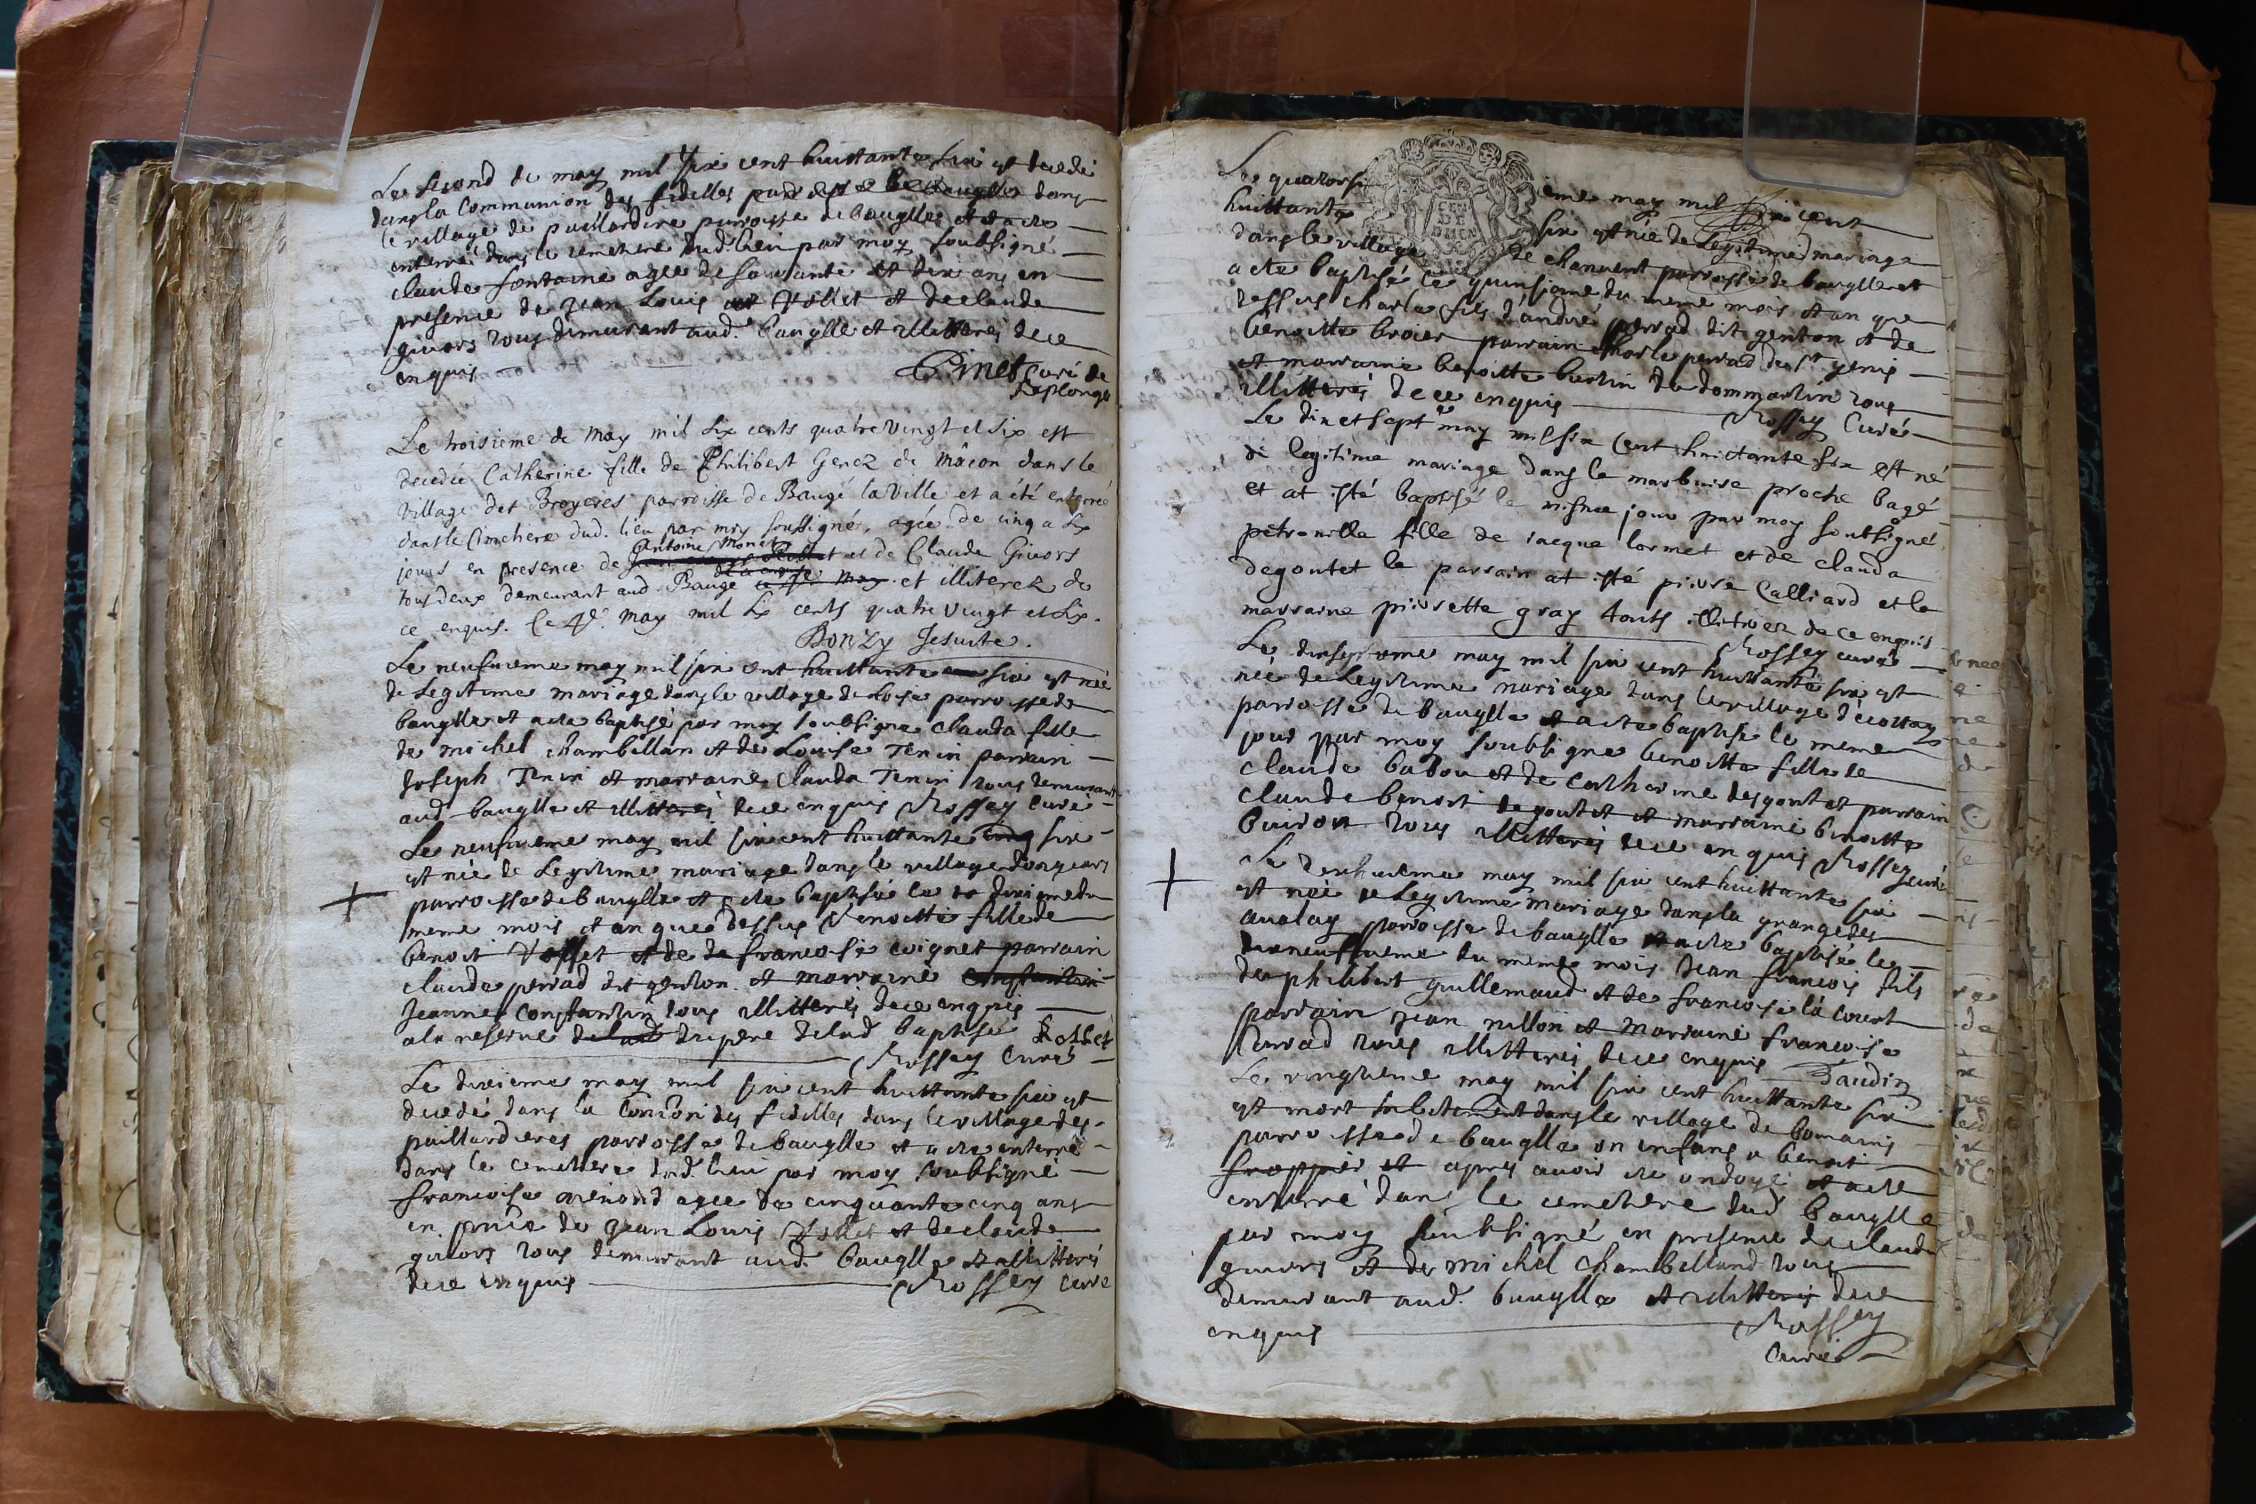 Le second de may mil six cent huittante six est decedé
dans la Communion des fidelles dans
le village de paillardire parroisse de baugllé et a este
enterré dans le cemetiere dud lieu par moy soubsigné
claude fontaine agee de soixante et dix ans en
presence de jean Louis vollet et de claude
givors tous demeurant aud. baugllé et illitterés de ce
enquis
Pinet Curé de
Replonge
Le troisieme de May mil six cents quatre vingt et six est
decedée Catherine fille de Philibert Genez de Mâcon dans le
village des Broyeres parroisse de Baugé la Ville et a été enterreé
dans le Cimetiere dud. lieu par moy soussigné, agée de cinq a six
jours en presence de Antoine Monet et de Claude Givors
tous deux demeurant aud. Baugé et illiterez de
ce enquis. Ce 4e. May mil six cents quatre vingt et six.
Bonzy Jesuite.
Le neufvieme may mil six cent huittante six est neé
de Legitime mariage dans le village de Loise parroisse de
baugllé et a este baptisé par moy soubsigne Clauda fille
de michel chambellan et de Louise Tenin parrain
Joseph Tenin et marraine Clauda Tenin tous demeurant
aud baugllé et illitterés de ce enquis Rossey Curé
Le neufvieme may mil six cent huittante cinq six
est neé de Legitime mariage dans le village
parroisse de baugllé et a este baptisée le dixieme du
meme mois et an que dessus benoitte fille de
benoit vollet et de francoise coignet parrain
claude perrad dit genton et marraine Constantin
Jeanne Constantin tous illitterés de ce enquis
a la reserve du pere de lad baptisee Vollet
Rossey Curé
Le dixieme may mil six cent huittante six est
decedé dans la Comon des fidelles dans le village des
paillardieres parroisse de baugllé et a este enterré
dans le cemetiere dud. lieu par moy soubsigné
francoise agee de cinquante cinq ans
en pnce de jean Louis Vollet et de claude
givors tous demeurant aud. baugllé et illitterés
de ce enquis Rossey Curé
Le quatorsieme may mil six cent
huittante six est née de Legitime mariage
dans le village de chanvent parroisse de baugllé et
a este baptisé le quinsieme du meme mois et an que
dessus charle fils d'andré perrad dit genton et de
benoitte broier parrain charle perrad de st genis
et marraine benoitte burtin de dommartin tous
illitterés de ce enquis
Rossey Curé
Le dix et sept may mil six cent huictante six est né
de legitime mariage dans le marbuise proche bagé
et at esté baptisé le mesme jour par moy soubsigné
petronille fille de iacque lormet et de clauda
degoutet le parrain at esté pierre Calliard et la
marraine pierrette gray touts illitrez de ce enquis
Rossey curé
Le dixseptieme may mil six cent huittante six est
neé de Legitime mariage dans le village d'écottay
parroisse de baugllé et a este baptisé le meme
jour par moy soubsigne benoitte fille de
claude babou et de Catherine desgoutet parrain
claude benoit degoutet et marraine benoitte
buiron tous illitterés de ce enquis Rossey curé
Le dixhuitieme may mil six cent huittante six
est neé de Legitime mariage dans la grange des
parroisse de baugllé et a este baptisé le
dixneufvieme du meme mois Jean francois fils
de philibert guillemaud et de francoise la court
parrain jean nillon et marraine francoise
perrad tous illitterés de ce enquis Daudin
Le vingtieme may mil six cent huittante six
est mort subitement dans le village de bomains
parroisse de baugllé un enfans a benoit
froppier et apres avoir ete ondoyé et a este
enterré dans le cemetiere dud baugllé
par moy soubsigné en presence de claude
givors et de michel chambelland tous
demeurant aud. baugllé et illitterés de ce
enquis
Rossey
Curé